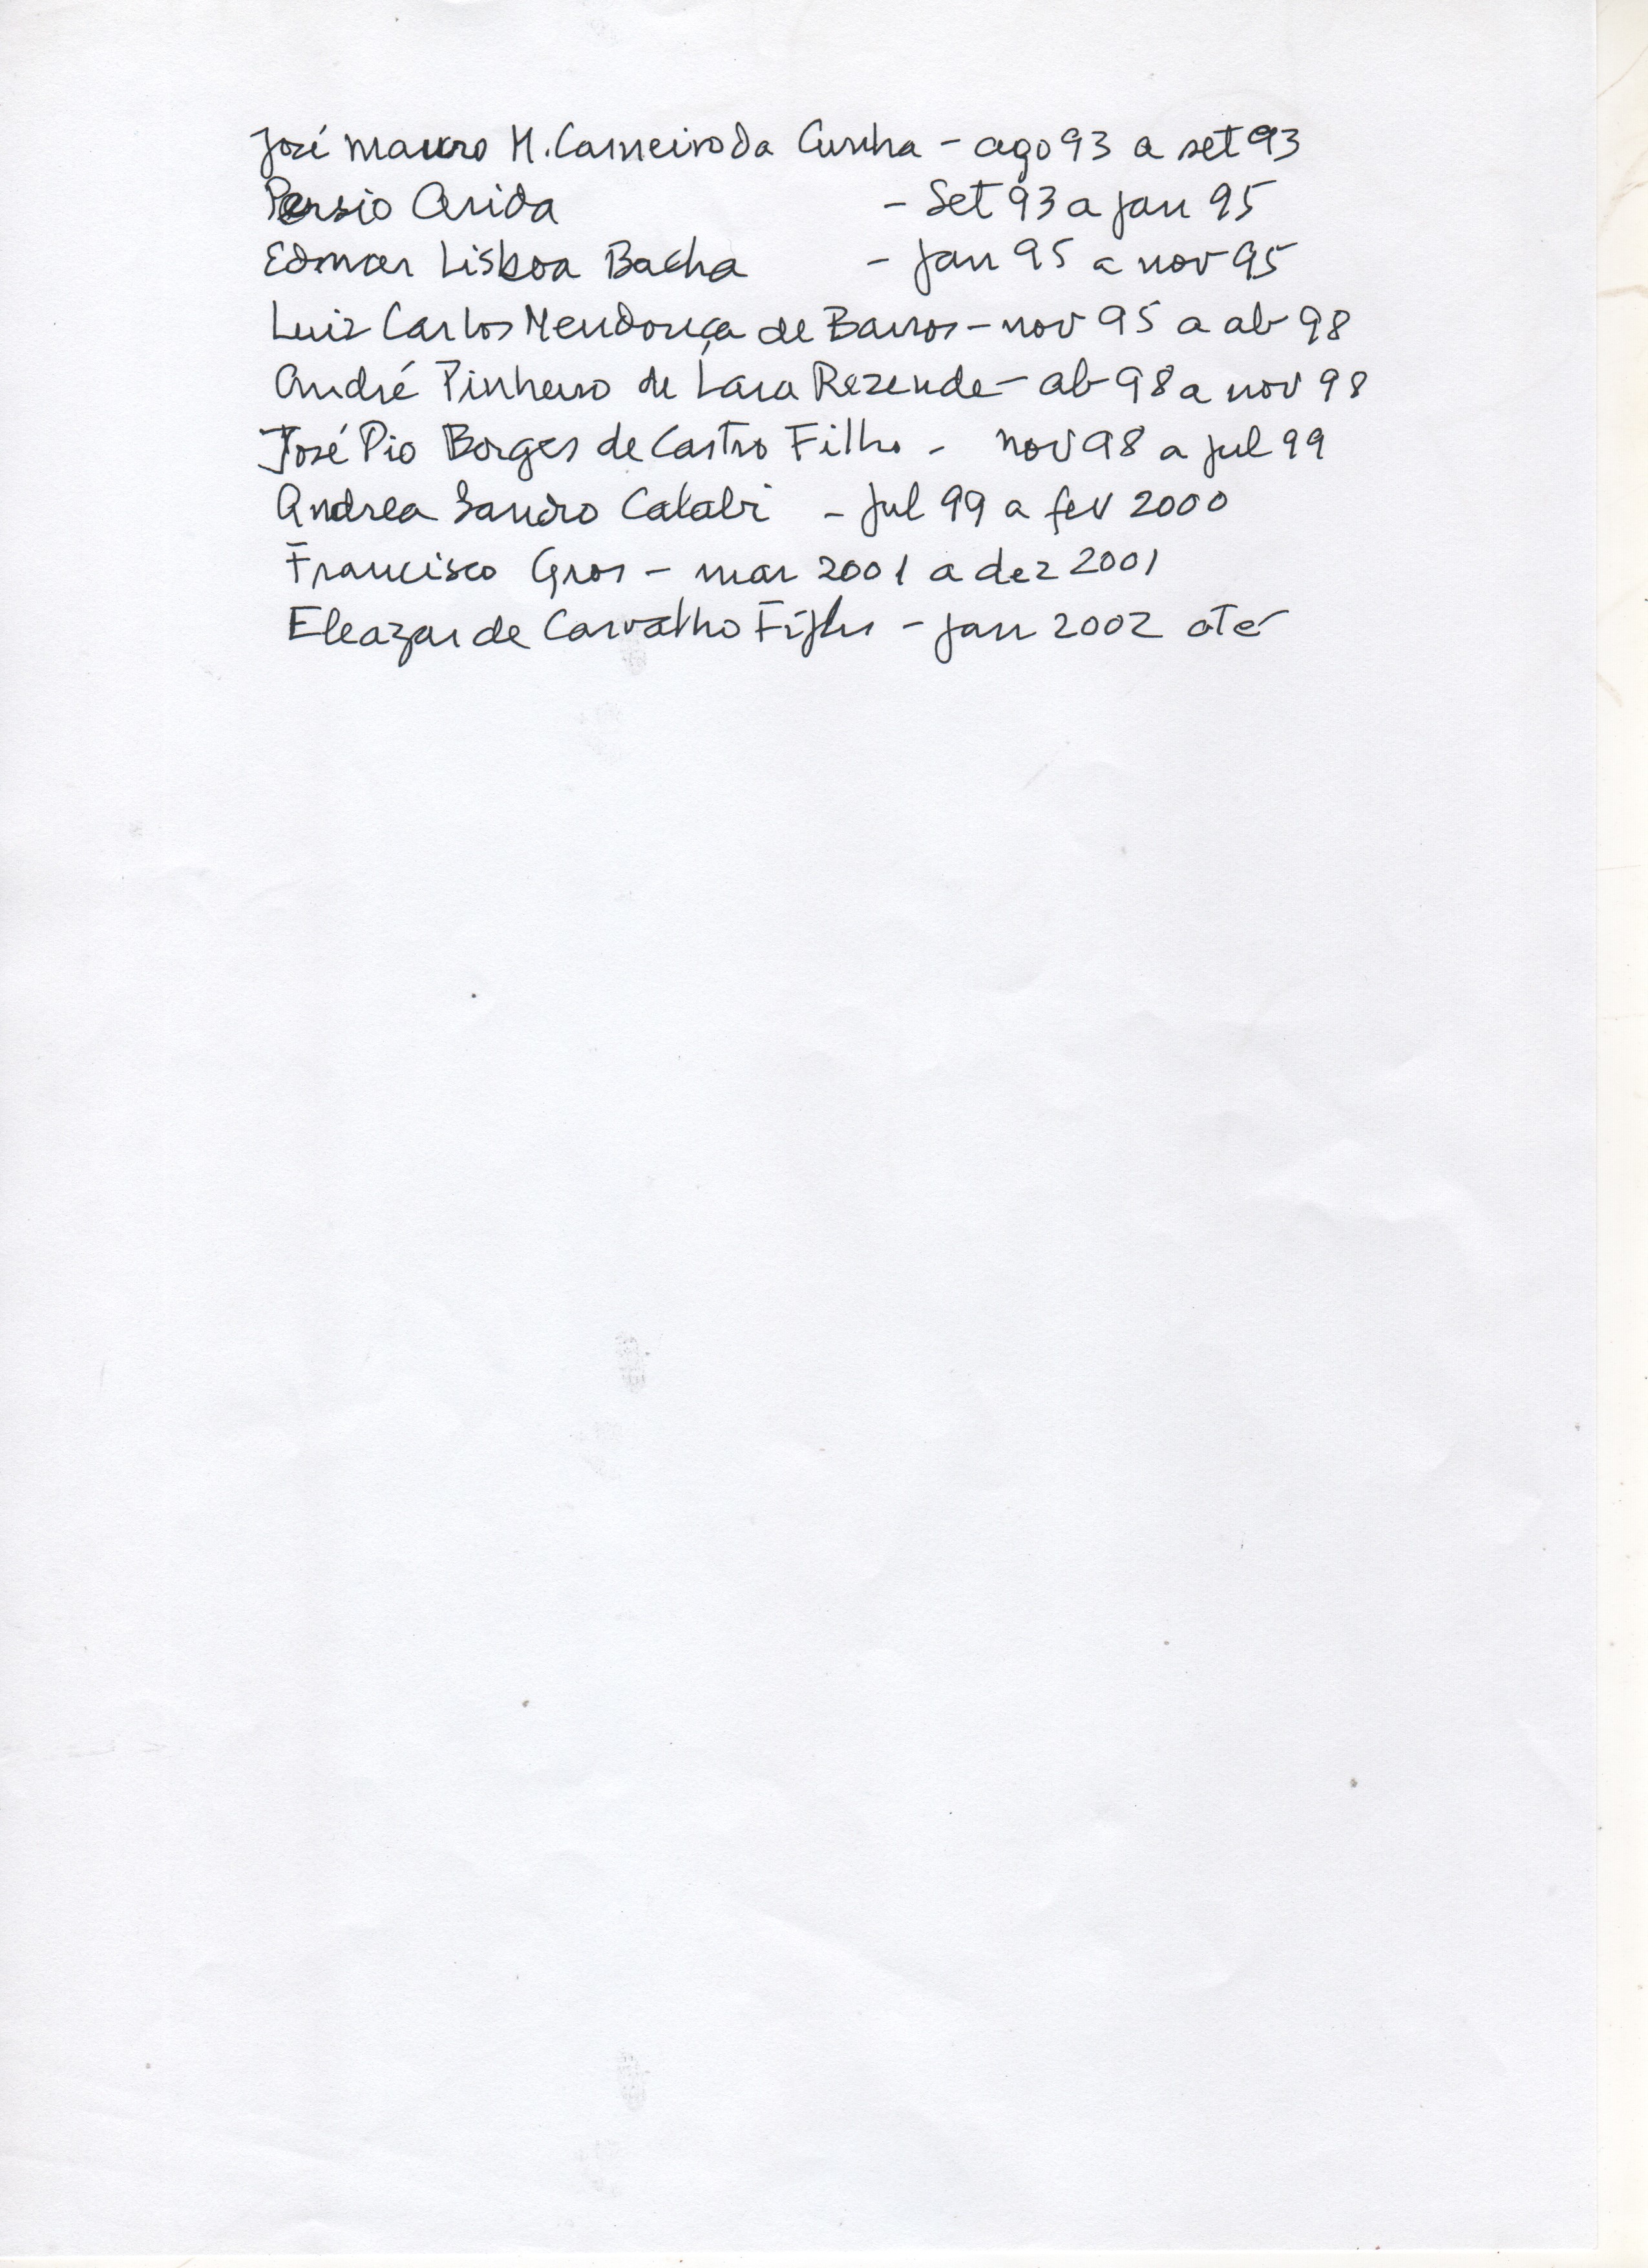 José Mauro M. Carneiro da Cunha - ago 93 a set 93
Persio Arida - Set 93 a jan 95
Edmar Lisboa Bacha - jan 95 a nov 95
Luiz Carlos Mendonça de Barros - nov 95 a ab 98
André Pinheiro de Lara Rezende - ab 98 a nov 98
José Pio Borges de Castro Filho - nov 98 a jul 99
Andrea Sandro Calabi - jul 99 a fev 2000
Francisco Gros - mar 2001 a dez 2001
Eleazar de Carvalho Filho - jan 2002 até